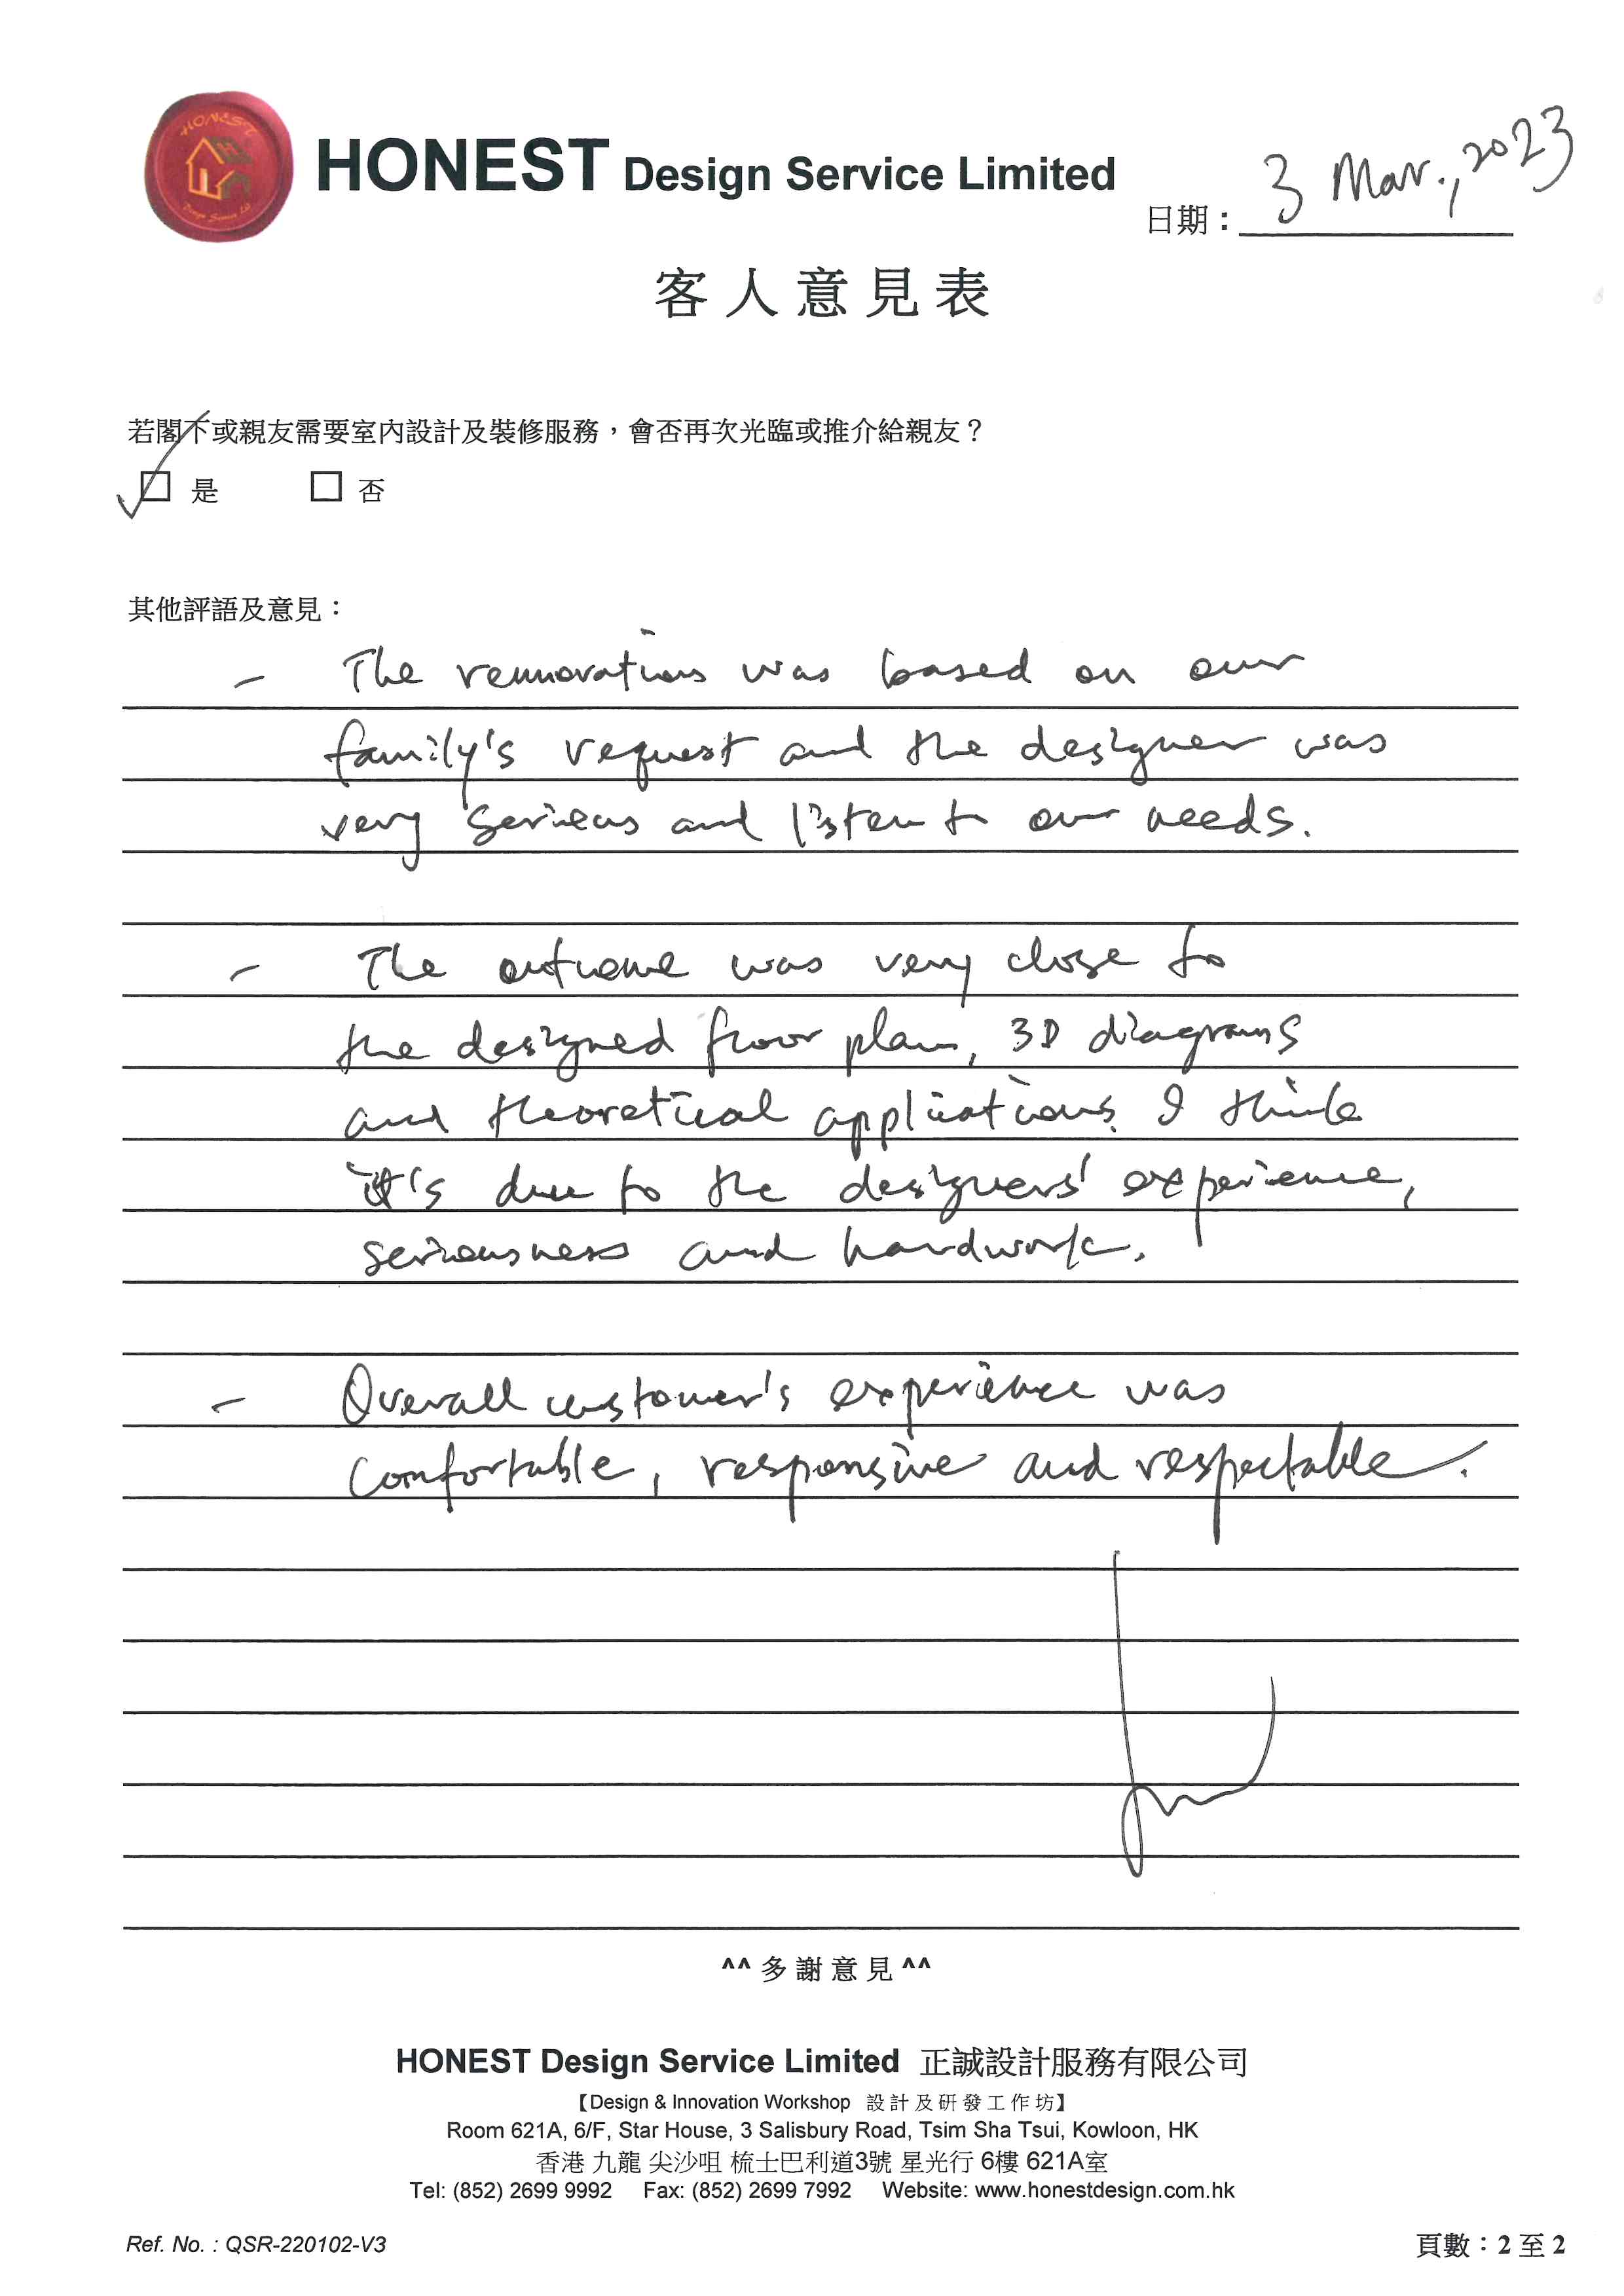 HONEST
Design Service Ltd
HONEST Design Service Limited
日期：3 Mar., 2023
客人意見表
若閣下或親友需要室內設計及裝修服務，會否再次光臨或推介給親友？
是 否
其他評語及意見：
- The rennovations was based on our
family's request and the designer was
very serious and listen to our needs.
- The outcome was very close to
the designed floor plan, 3D diagrams
and theoretical applications. I think
it's due to the designers' experience,
seriousness and hardwork.
- Overall customer's experience was
comfortable, responsive and respectable.
^^多謝意見^^
HONEST Design Service Limited 正誠設計服務有限公司
【Design & Innovation Workshop 設計及研發工作坊】
Room 621A, 6/F, Star House, 3 Salisbury Road, Tsim Sha Tsui, Kowloon, HK
香港 九龍 尖沙咀 梳士巴利道3號 星光行 6樓 621A室
Tel: (852) 2699 9992 Fax: (852) 2699 7992 Website: www.honestdesign.com.hk
Ref. No. : QSR-220102-V3
頁數：2 至 2